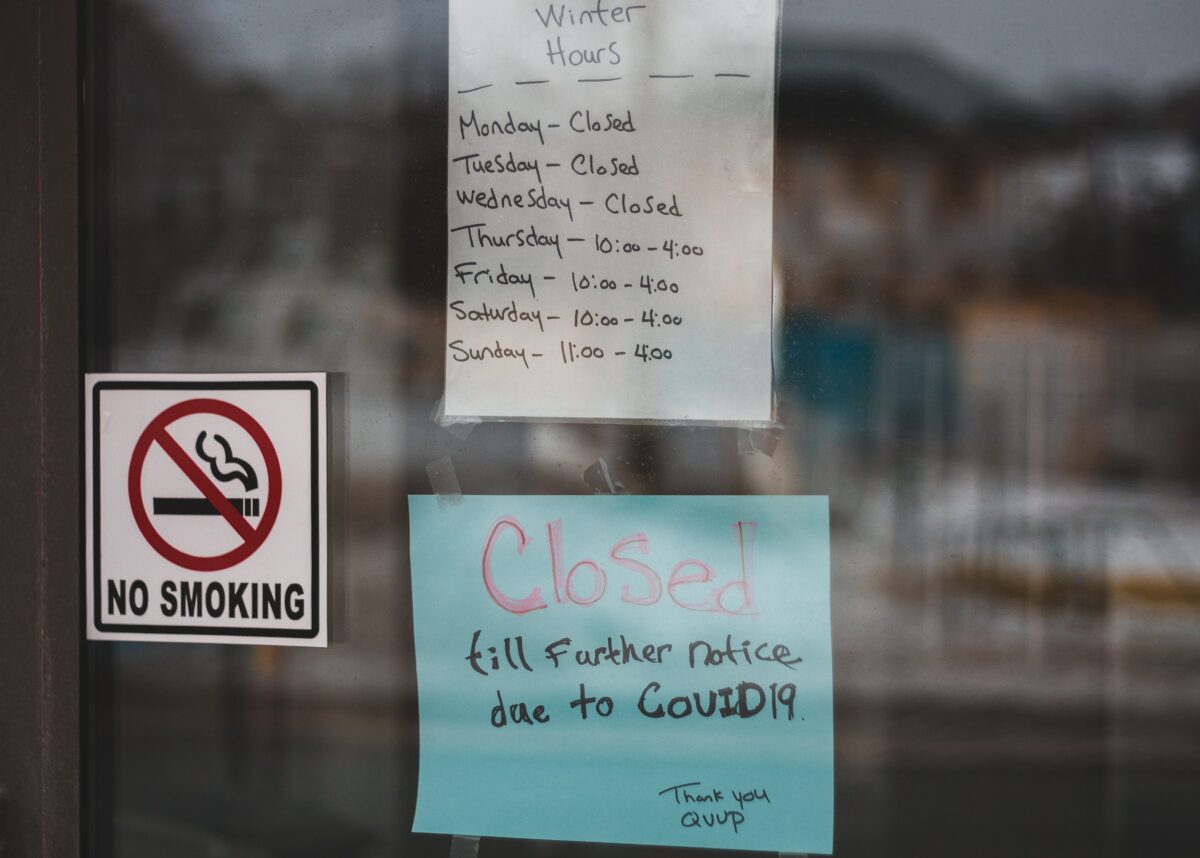 Winter
Hours
Monday - Closed
Tuesday - Closed
Wednesday - Closed
Thursday - 10:00 - 4:00
Friday - 10:00 - 4:00
Saturday - 10:00 - 4:00
Sunday - 11:00 - 4:00
NO SMOKING
Closed
till Further notice
due to COVID19.
Thank you
QUUP